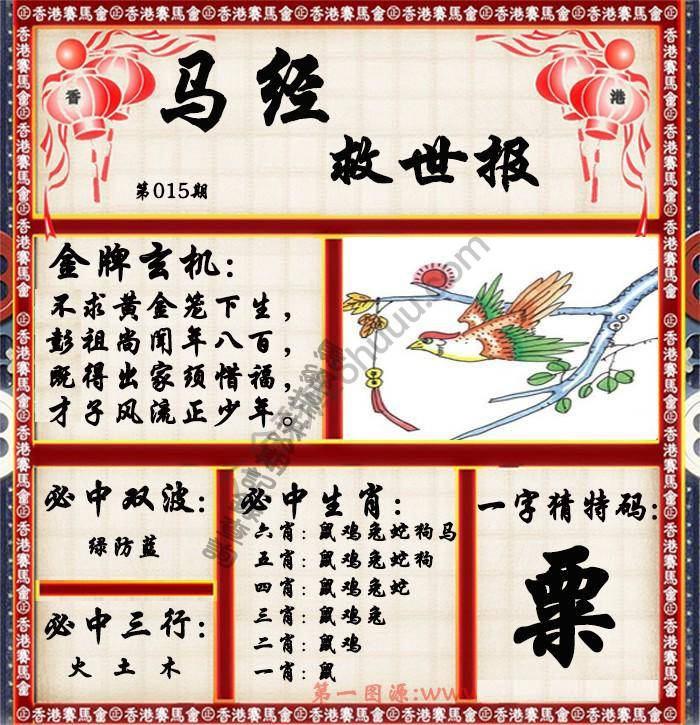 香港賽馬會㊣香港賽馬會㊣香港賽馬會㊣香港賽馬會㊣香港賽馬會㊣香港賽馬會
香
港
马经
救世报
第015期
金牌玄机:
不求黄金笼下生,
彭祖尚闻年八百,
既得出家须惜福,
才子风流正少年。
必中双波:
绿防蓝
必中三行:
火 土 木
必中生肖:
六肖: 鼠鸡兔蛇狗马
五肖: 鼠鸡兔蛇狗
四肖: 鼠鸡兔蛇
三肖: 鼠鸡兔
二肖: 鼠鸡
一肖: 鼠
一字猜特码:
栗
第一图源:www